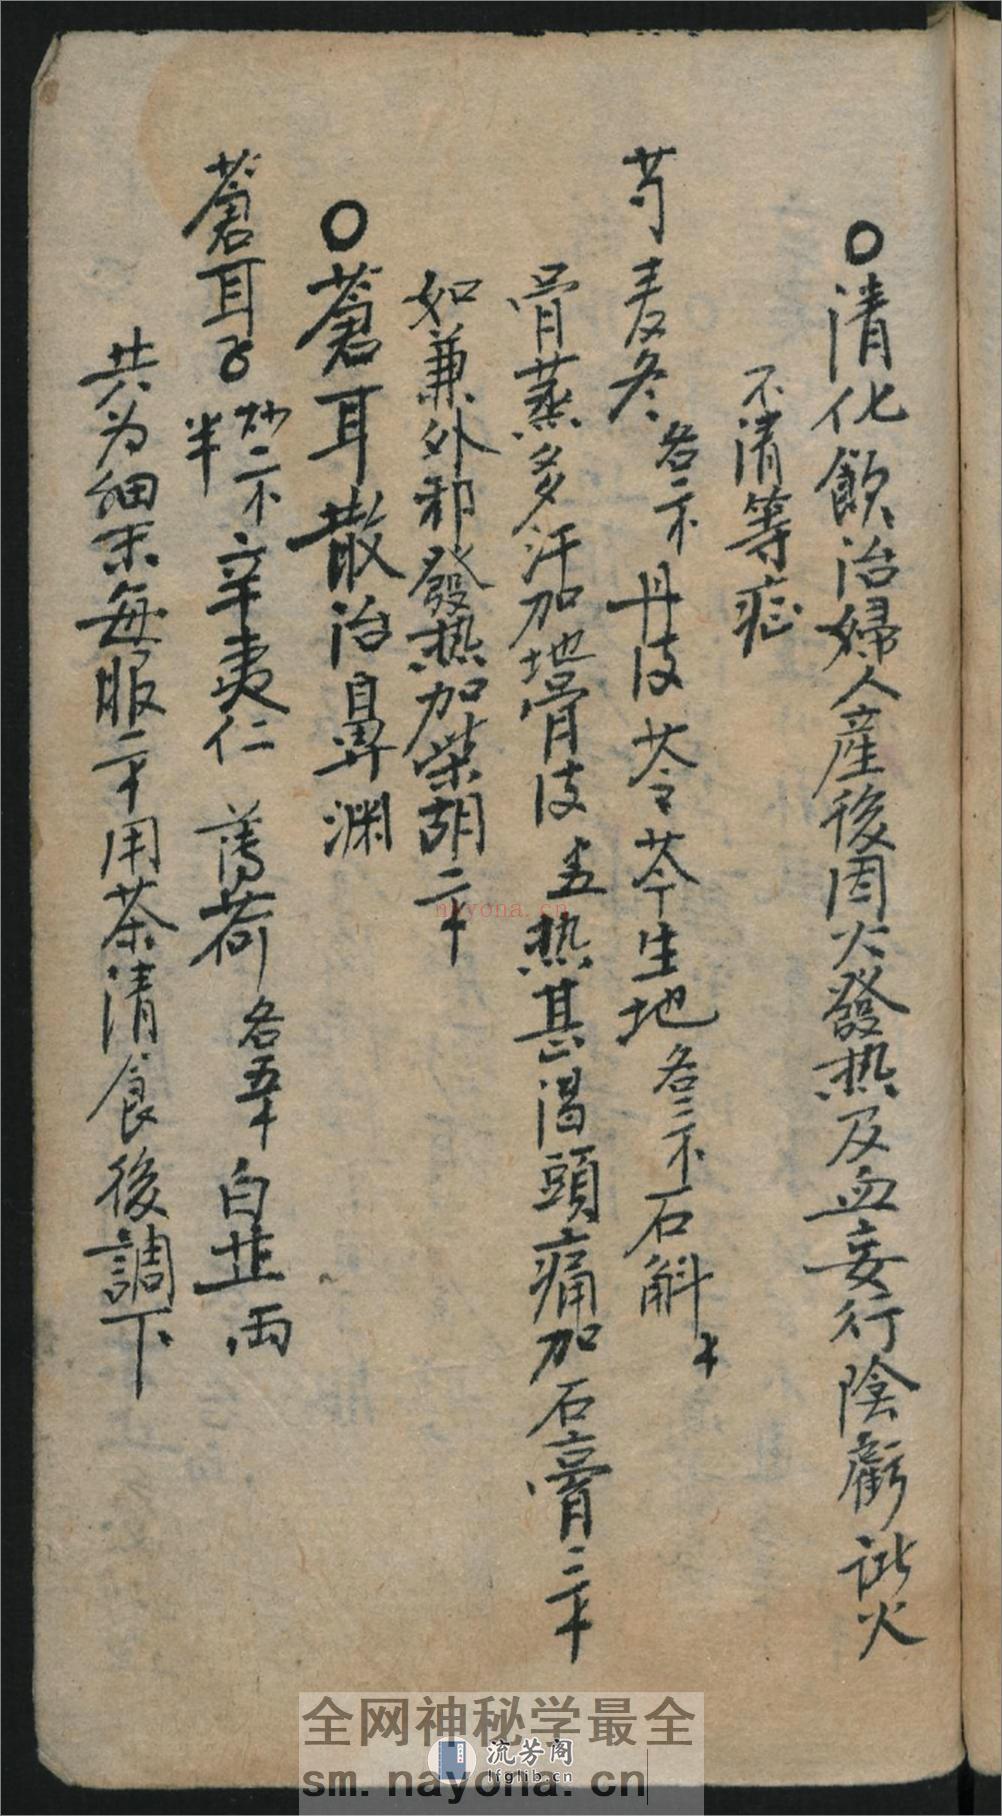 〇清化飲治婦人產後因火發热及血妄行陰虧諸火
不清等症
芍麦冬各二不丹皮苓芩生地各二不石斛
骨蒸多汗加地骨皮热甚渴頭痛加石膏三
如兼外邪發热加柴胡二
〇蒼耳散治鼻渊
蒼耳子炒二不半辛夷仁薄荷各五白芷一両
共为细末每服二用茶清食後調下
全网神秘学最全
流芳阁
lfglib.cn
sm.nayona.cn
nayona.cn